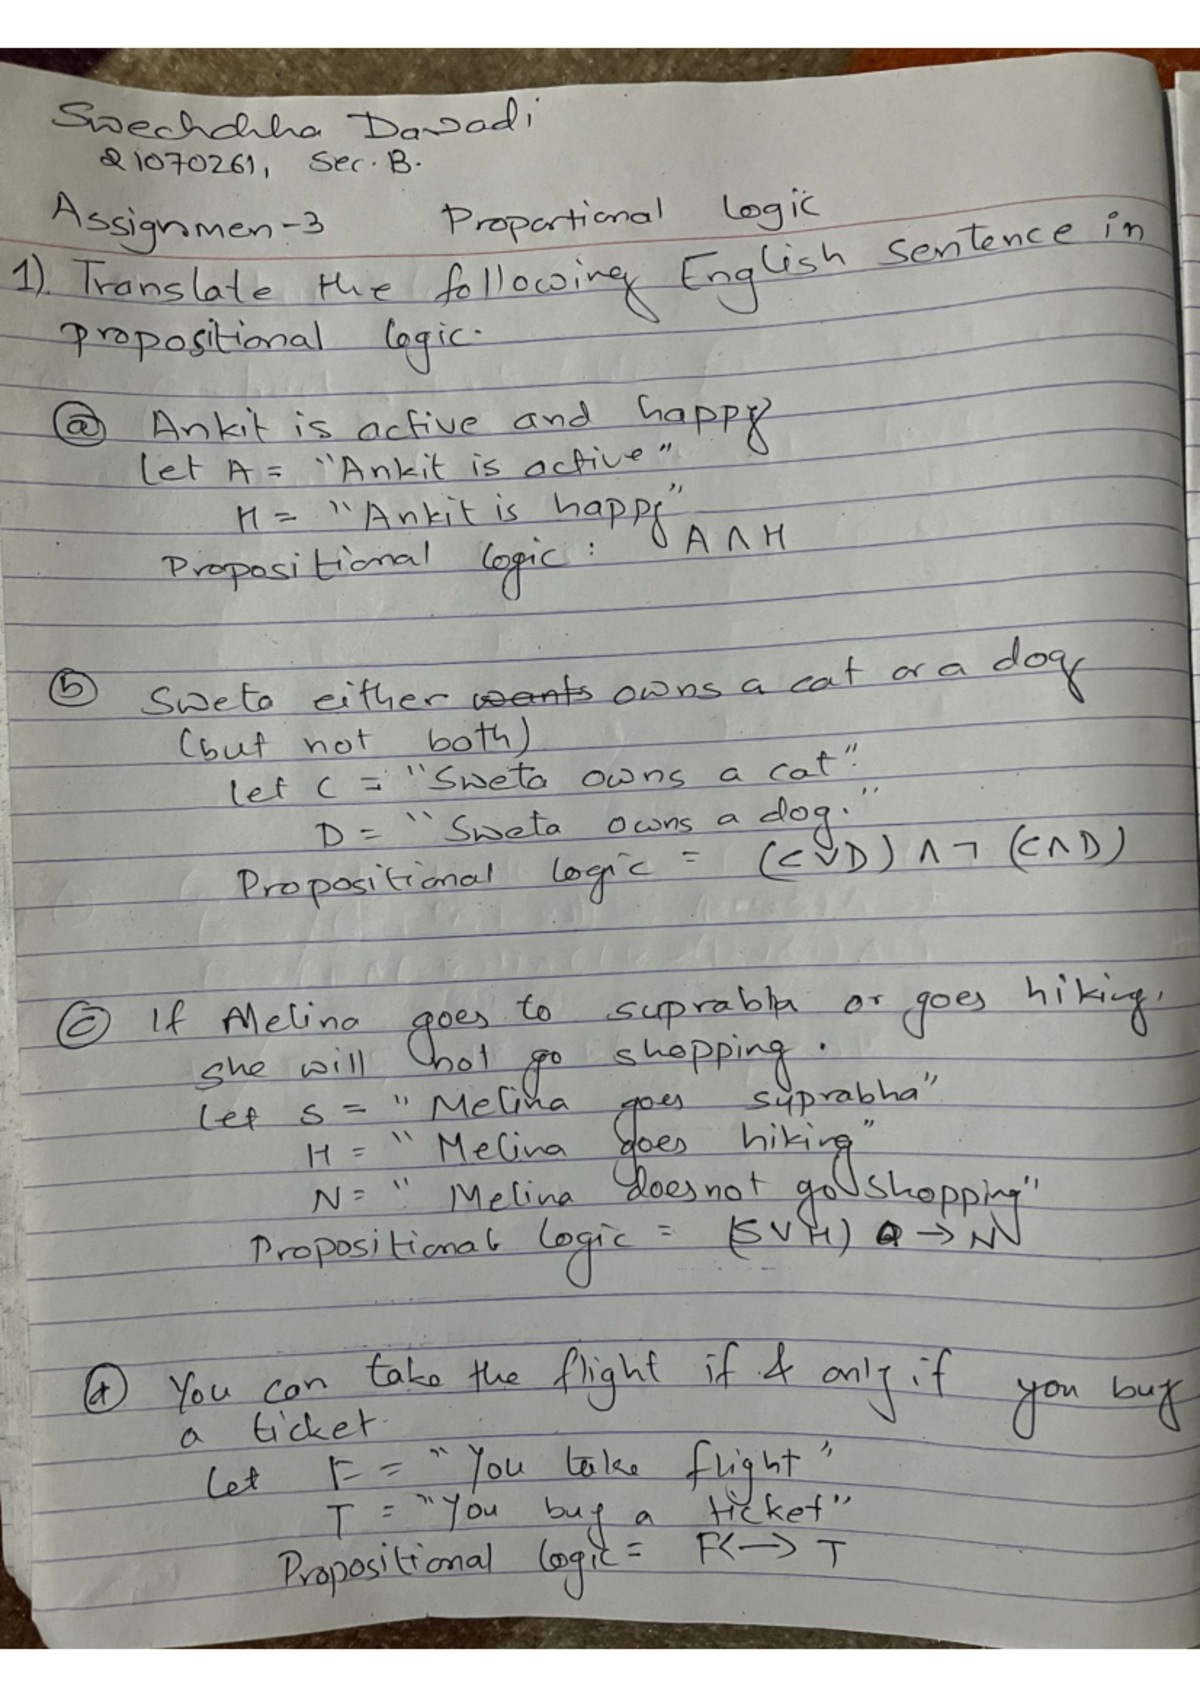 Swechchha Dawadi
21070261, Sec. B.
Assignmen-3 Proportional Logic
1). Translate the following English sentence in
propositional logic.
ⓐ Ankit is active and happy
Let A = "Ankit is active"
H = "Ankit is happy"
Propositional logic : A ∧ H
ⓑ Sweta either wants owns a cat or a dog
(but not both)
let C = "Sweta owns a cat".
D = "Sweta owns a dog."
Propositional logic = (C ∨ D) ∧ ¬ (C ∧ D)
ⓒ If Melina goes to suprabha or goes hiking,
she will not go shopping.
Let S = "Melina goes suprabha"
H = "Melina goes hiking"
N = "Melina does not go shopping"
Propositional logic = (S ∨ H) → N
ⓓ You can take the flight if & only if you buy
a ticket.
Let F = "You take flight"
T = "You buy a ticket"
Propositional logic = F <-> T